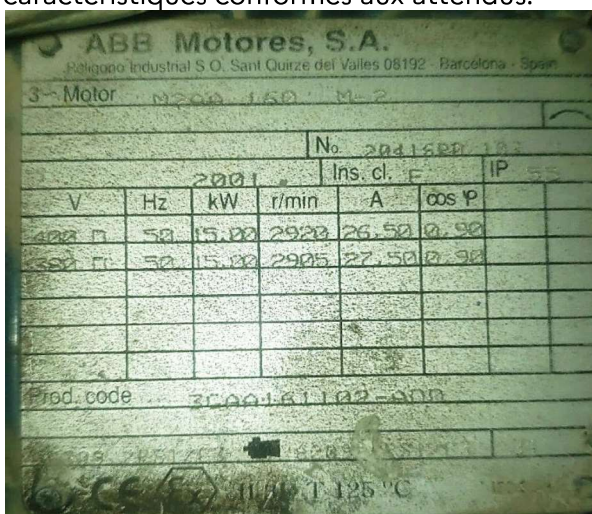 caractéristiques conformes aux attendus.
ABB Motores, S.A.
Poligono Industrial S.O. Sant Quirze del Valles 08192 - Barcelona - Spain
3~ Motor M2AA 160 M-2
No
2001 Ins. cl. F IP 55
V Hz kW r/min A cos φ
400 50 15.00 2920 26.50 0.90
380 50 15.00 2905 27.50 0.90
Prod. code 3GAA161102-ADD
CE Ex T 125 °C